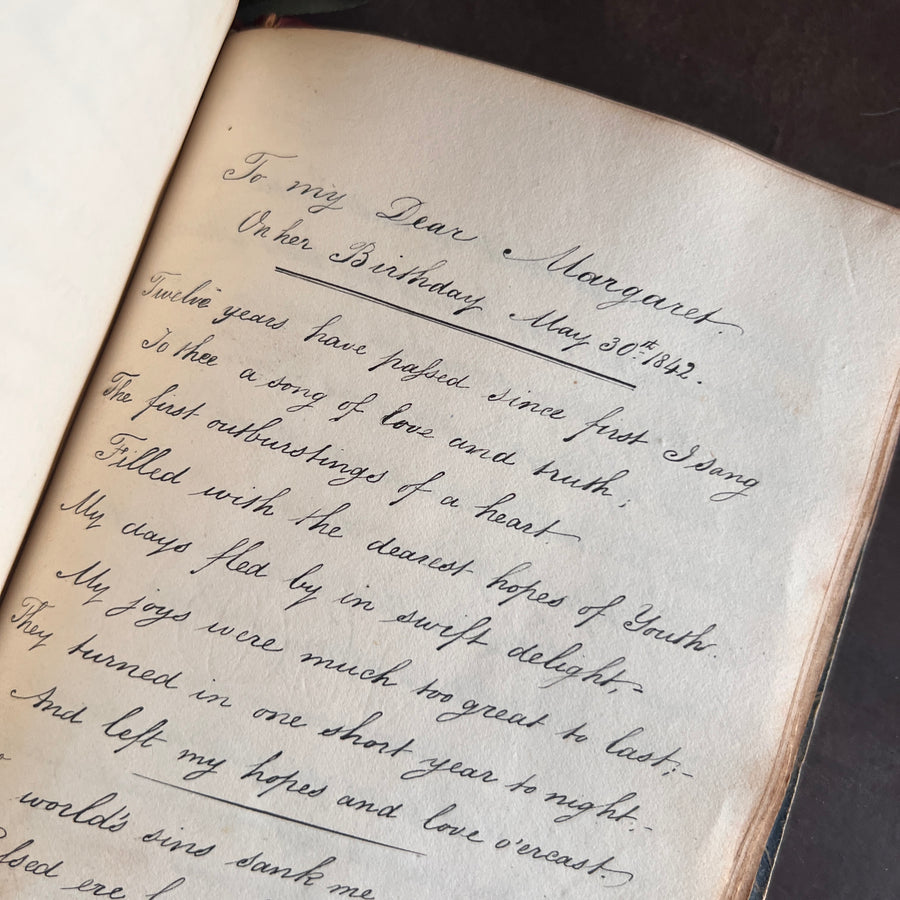 To my Dear Margaret.
On her Birthday May 30th 1842.
Twelve years have paſsed since first I sang
To thee a song of love and truth;
The first outburstings of a heart
Filled with the dearest hopes of Youth.
My days fled by in swift delight,-
My joys were much too great to last:-
They turned in one short year to night:-
And left my hopes and love o'ercast.
world's sins sank me
ere